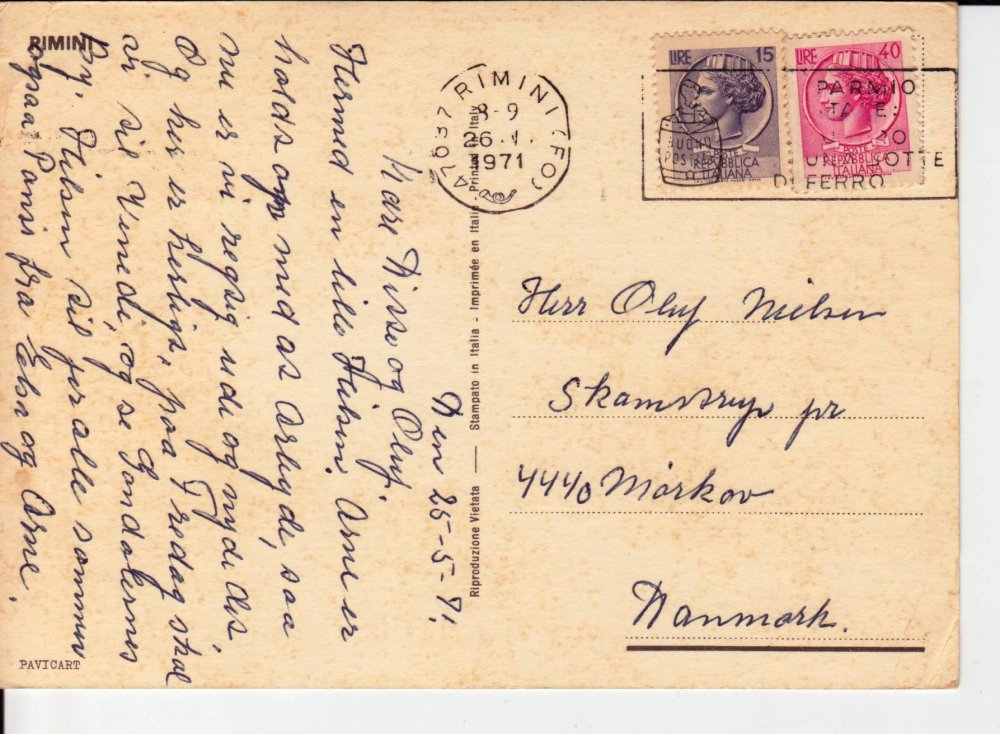 RIMINI
Den 25-5-71.
Kære Disse og Oluf.
Hermed en lille Hilsen. Arne er
holdt op med at arbejde, saa
nu er vi rejst ud og nyde det,
Og her er herligt, paa Fredag skal
vi til Venedig og se Gondolernes
By. Hilsen til jer alle sammen
ogsaa fra Elsa og Arne.
PAVICART
Riproduzione Vietata — Stampato in Italia - Imprimée en Italie - Printed in Italy
47037 RIMINI (FO)
8-9
26.V.
1971
LIRE 15
POSTE
REPVBBLICA
ITALIANA
LIRE 40
POSTE
REPVBBLICA
ITALIANA
DI FERRO
Herr Oluf Nielsen
Skamstrup pr
4440 Mörkøv
Danmark.